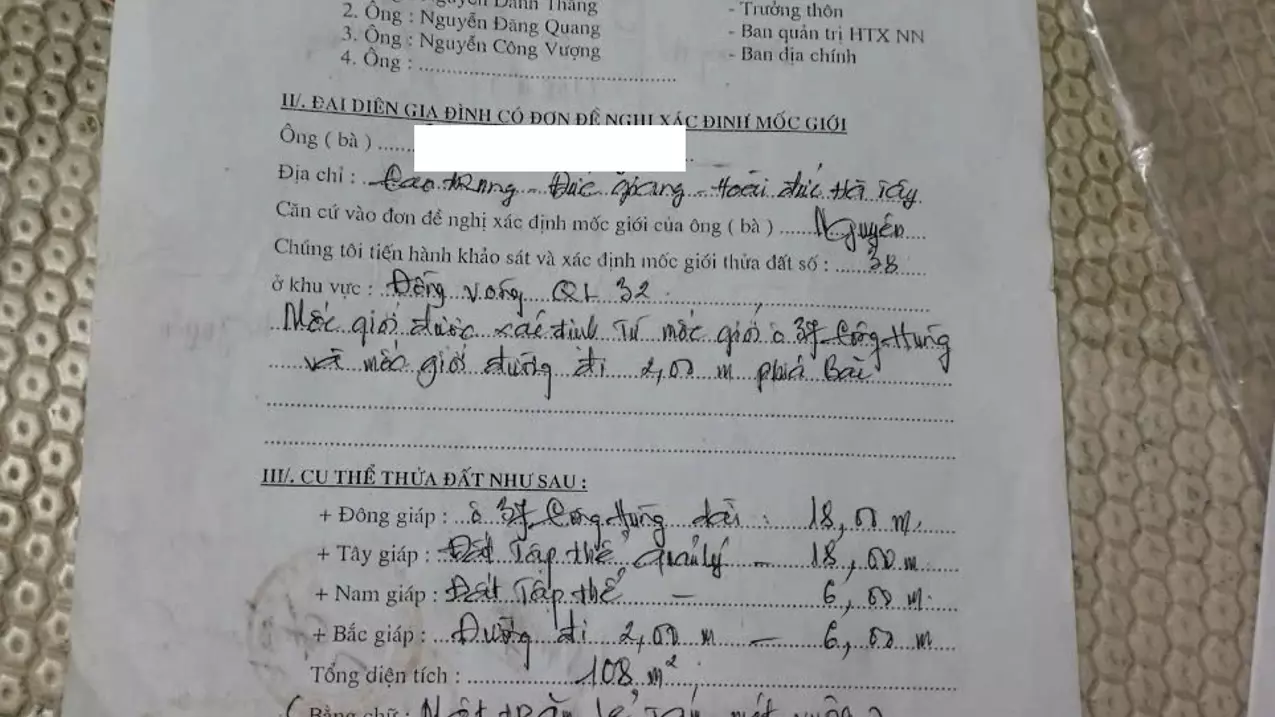 Nguyễn Danh Thắng - Trưởng thôn
2. Ông : Nguyễn Đăng Quang - Ban quản trị HTX NN
3. Ông : Nguyễn Công Vượng - Ban địa chính
4. Ông : ............................................
II/. ĐẠI DIỆN GIA ĐÌNH CÓ ĐƠN ĐỀ NGHỊ XÁC ĐỊNH MỐC GIỚI
Ông ( bà ) ......
Địa chỉ : Cao trung - Đức giang - Hoài đức Hà Tây
Căn cứ vào đơn đề nghị xác định mốc giới của ông ( bà ) ...... Nguyễn ....
Chúng tôi tiến hành khảo sát và xác định mốc giới thửa đất số : ...... 38 ....
ở khu vực : Đồng vòng QL 32
Mốc giới được xác định Từ mốc giới ô 37 Công Hưng
và mốc giới đường đi 2,00 m phía Bắc
III/. CỤ THỂ THỬA ĐẤT NHƯ SAU :
+ Đông giáp : ô 37 Công Hưng dài : 18,00 m
+ Tây giáp : Đất Tập thể quản lý - 18,00 m
+ Nam giáp : Đất Tập thể - 6,00 m
+ Bắc giáp : Đường đi 2,00 m - 6,00 m
Tổng diện tích : 108 m²
( Bằng chữ : Một trăm lẻ Tám mét vuông )